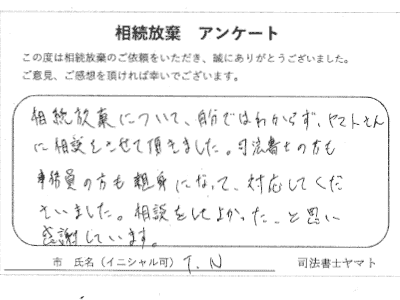 相続放棄 アンケート
この度は相続放棄のご依頼をいただき、誠にありがとうございました。
ご意見、ご感想を頂ければ幸いでございます。
相続放棄について、自分ではわからず、ヤマトさん
に相談をさせて頂きました。司法書士の方も
事務員の方も親身になって、対応してくだ
さいました。相談をしてよかった、と思い
感謝しています。
市 氏名(イニシャル可) T.N 司法書士ヤマト